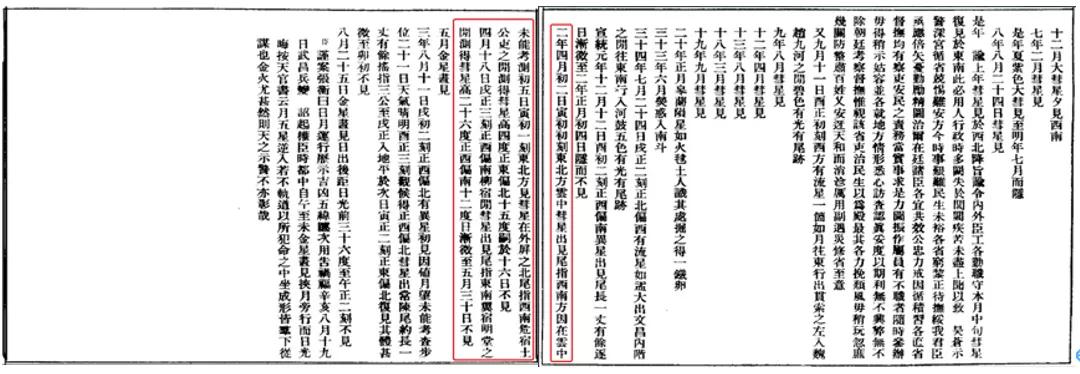 十二月大彗星夕見西南
七年二月彗星見
是年夏紫色大彗見至明年七月而隱
八年八月二十四日彗星見
是年 諭上年彗星見於西北降旨諭令內外臣工各勤職守本月中旬彗星
復見於東南此必用人行政時多闕失於閭閻疾苦未盡上聞以致 昊蒼示
警深宮循省兢惕難安方今時事艱難民生未裕各省窮黎正待撫綏我君臣
亟應倍矢憂勤勵精圖治爾在廷諸臣各宜共效公忠力戒因循積習各直省
督撫均有察吏安民之責務當實事求是力圖振作屬員有不職者隨時參辦
毋得稍示姑容並各就地方情形悉心訪查認真妥度以期利無不興弊無不
除朝廷考察督撫惟視該省吏治民生以為殿最其各力挽頹風毋稍玩忽庶
幾閭閻整遒百姓乂安迓天和而消沴厲用副遇災修省至意
又九月十一日酉正初刻西方有流星一個如月往東行出貫索之左入魏
趙九河之間碧色有光有尾跡
九年八月彗星見
十二年四月彗星見
十三年八月彗星見
十八年三月彗星見
十九年九月彗星見
二十年正月皋蘭隕星如火毬土人識其處掘之得一鐵卵
三十三年六月熒惑入南斗
三十四年七月二十四日戌正二刻正北偏西有流星如盞大出文昌內階
之間往東南行入河鼓五色有光有尾跡
宣統元年十二月十二日酉初二刻正西偏南異星出見尾長一丈有餘逐
日漸微至二年正月初四日隱而不見
二年四月初二日寅初初刻東北方雲中彗星出見尾指西南方因在雲中
未能考測初五日寅初一刻東北方見彗星在外屏之北尾指西南危宿土
公吏之間測得彗星高四度正東偏北十五度嗣於十六日不見
四月十八日戌正三刻正西偏南柳宿間彗星出見尾指東南翼宿明堂之
間測得彗星高二十六度正西偏南十二度日漸微至五月三十日不見
五月金星晝見
三年八月十一日戌初二刻正西偏北有異星初見因值月望未能考查步
位二十一日天氣晴明酉正三刻觀候得正西偏北彗星出常陳尾約長一
丈有餘搖指三公至戌正入地平於次日寅正二刻正東偏北復見其體甚
微至卯初不見
八月二十五日金星晝見日出後距日光前三十六度至午正二刻不見
臣謹案張衡曰日月運行歷示吉凶五緯躔次用告禍福辛亥八月十九
日武昌兵變 詔起權臣時都中自午至未金星晝見挾月旁行而日光
晦按天官書云月五星逆入若不軌道以所犯命之中坐成形皆羣下從
謀也金火尤甚然則天之示警不亦彰哉